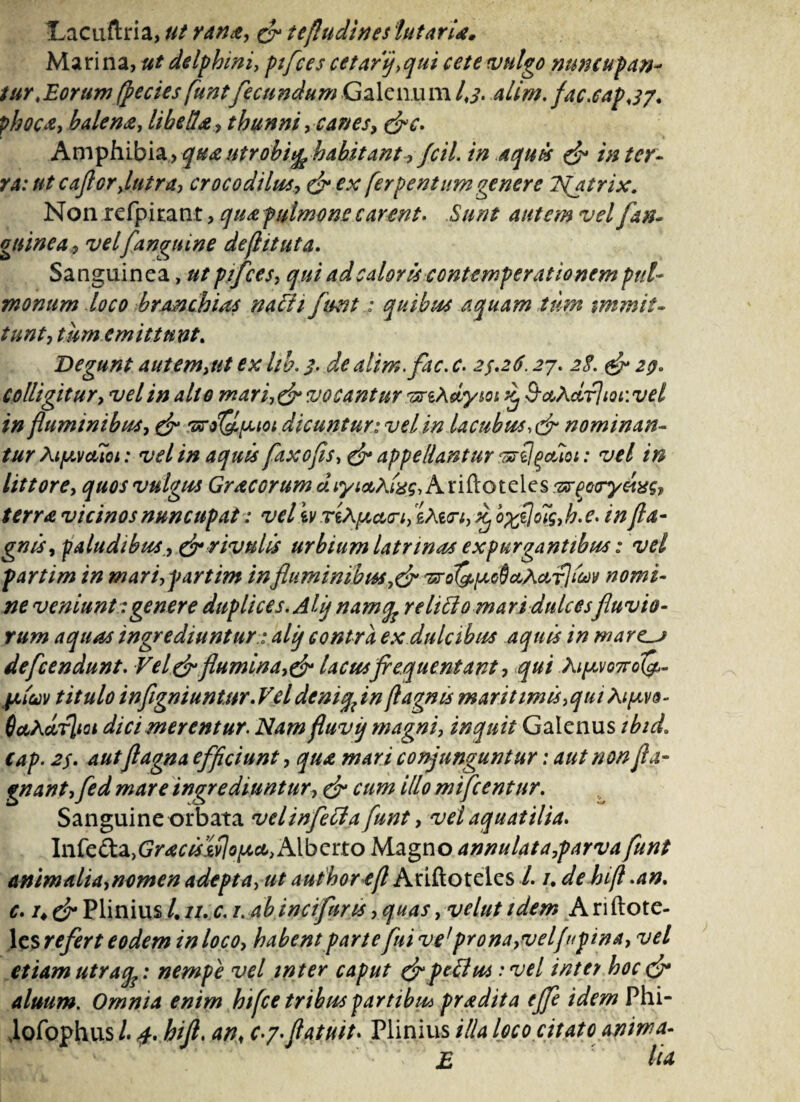 Lacuſtria, ut ranæ, & teſtudines lutariæ.
Marina, ut delphini, piſces cetarij, qui cete vulgo nuncupan-
tur. Eorum ſpecies ſunt ſecundum Galenum l.3. alim. fac.cap.37.
phocæ, balenæ, libellæ, thunni, canes, &c.
Amphibia, quæ utrobiq; habitant, ſcil. in aquis & in ter-
ra: ut caſtor, lutra, crocodilus, & ex ſerpentum genere Natrix.
Non reſpirant, quæ pulmone carent. Sunt autem vel ſan-
guinea, vel ſanguine deſtituta.
Sanguinea, ut piſces, qui ad caloris contemperationem pul-
monum loco branchias nacti ſunt: quibus aquam tùm immit-
tunt, tùm emittunt.
Degunt autem, ut ex lib. 3. de alim. fac. c. 25.26. 27. 28. & 29.
colligitur, vel in alto mari, & vocantur πελάγιοι ϗ θαλάτλιοι: vel
in fluminibus, & ποτάμιοι dicuntur: vel in lacubus, & nominan-
tur λιμναῖοι: vel in aquis ſaxoſis, & appellantur πετραῖοι: vel in
littore, quos vulgus Græcorum αἰγιαλίας, Ariſtoteles προσγείας,
terræ vicinos nuncupat: vel ἐν τέλμασι, ἕλεσι, ϗ ὀχετοῖς, h.e. in ſta-
gnis, paludibus, & rivulis urbium latrinas expurgantibus: vel
partim in mari, partim in fluminibus, & ποταμοθαλατλίων nomi-
ne veniunt: genere duplices. Alij namq; relicto mari dulces fluvio-
rum aquas ingrediuntur: alij contrà ex dulcibus aquis in mare
deſcendunt. Vel & flumina, & lacus frequentant, qui λιμνοποτα-
μίων titulo inſigniuntur. Vel deniq; in ſtagnis maritimis, qui λιμνο-
θαλάτλιοι dici merentur. Nam fluvij magni, inquit Galenus ibid.
cap. 25. aut ſtagna efficiunt, quæ mari conjunguntur: aut non ſta-
gnant, ſed mare ingrediuntur, & cum illo miſcentur.
Sanguine orbata vel inſecta ſunt, vel aquatilia.
Inſecta, Græcis ἔντομα, Alberto Magno annulata, parva ſunt
animalia, nomen adepta, ut author eſt Ariſtoteles l. 1. de hiſt .an.
c. 1. & Plinius l. 11. c. 1. ab inciſuris, quas, velut idem Ariſtote-
les refert eodem in loco, habent parte ſui vel prona, vel ſupina, vel
etiam utraq;: nempè vel inter caput & pectus: vel inter hoc &
aluum. Omnia enim hiſce tribus partibus prædita eſſe idem Phi-
loſophus l. 4. hiſt. an. c.7. ſtatuit. Plinius illa loco citato anima-
E lia